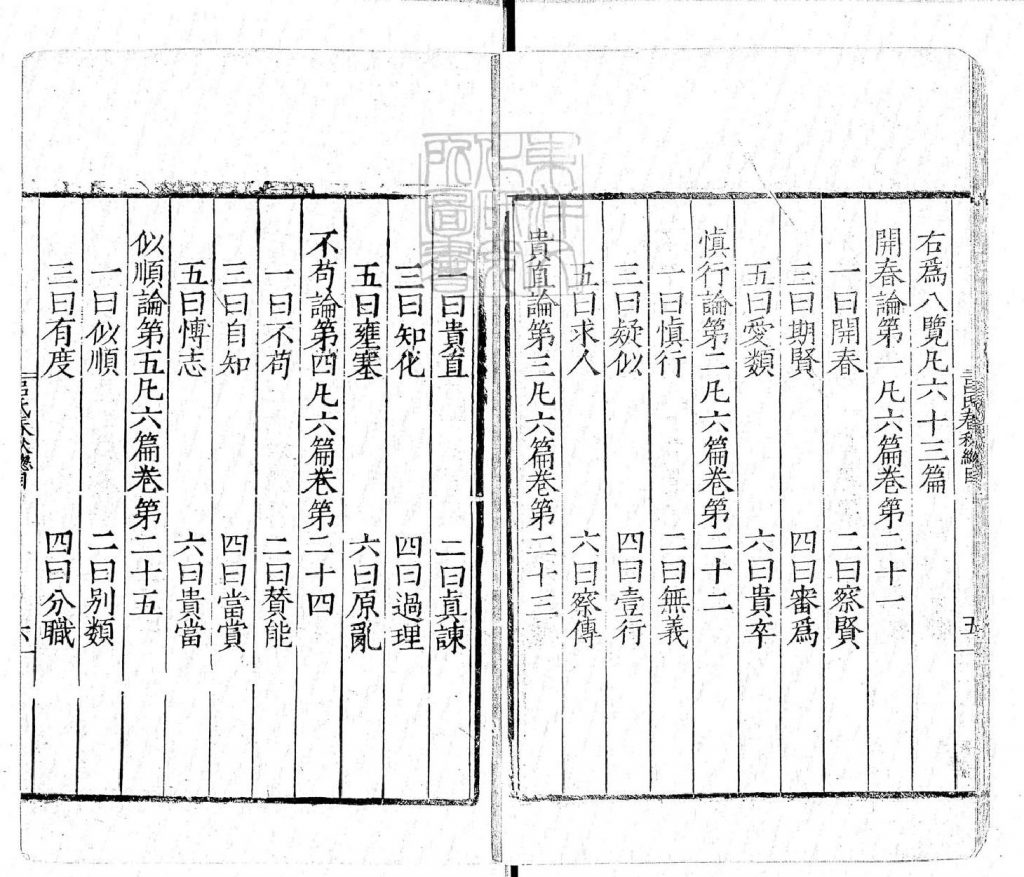 右爲八覽凡六十三篇
開春論第一凡六篇卷第二十一
一曰開春 二曰察賢
三曰期賢 四曰審爲
五曰愛類 六曰貴卒
慎行論第二凡六篇卷第二十二
一曰慎行 二曰無義
三曰疑似 四曰壹行
五曰求人 六曰察傳
貴直論第三凡六篇卷第二十三
一曰貴直 二曰眞諫
三曰知化 四曰過理
五曰壅塞 六曰原亂
不苟論第四凡六篇卷第二十四
一曰不苟 二曰贊能
三曰自知 四曰當賞
五曰愽志 六曰貴當
似順論第五凡六篇卷第二十五
一曰似順 二曰别類
三曰有度 四曰分職
呂氏春秋總目
五
呂氏春秋總目
六